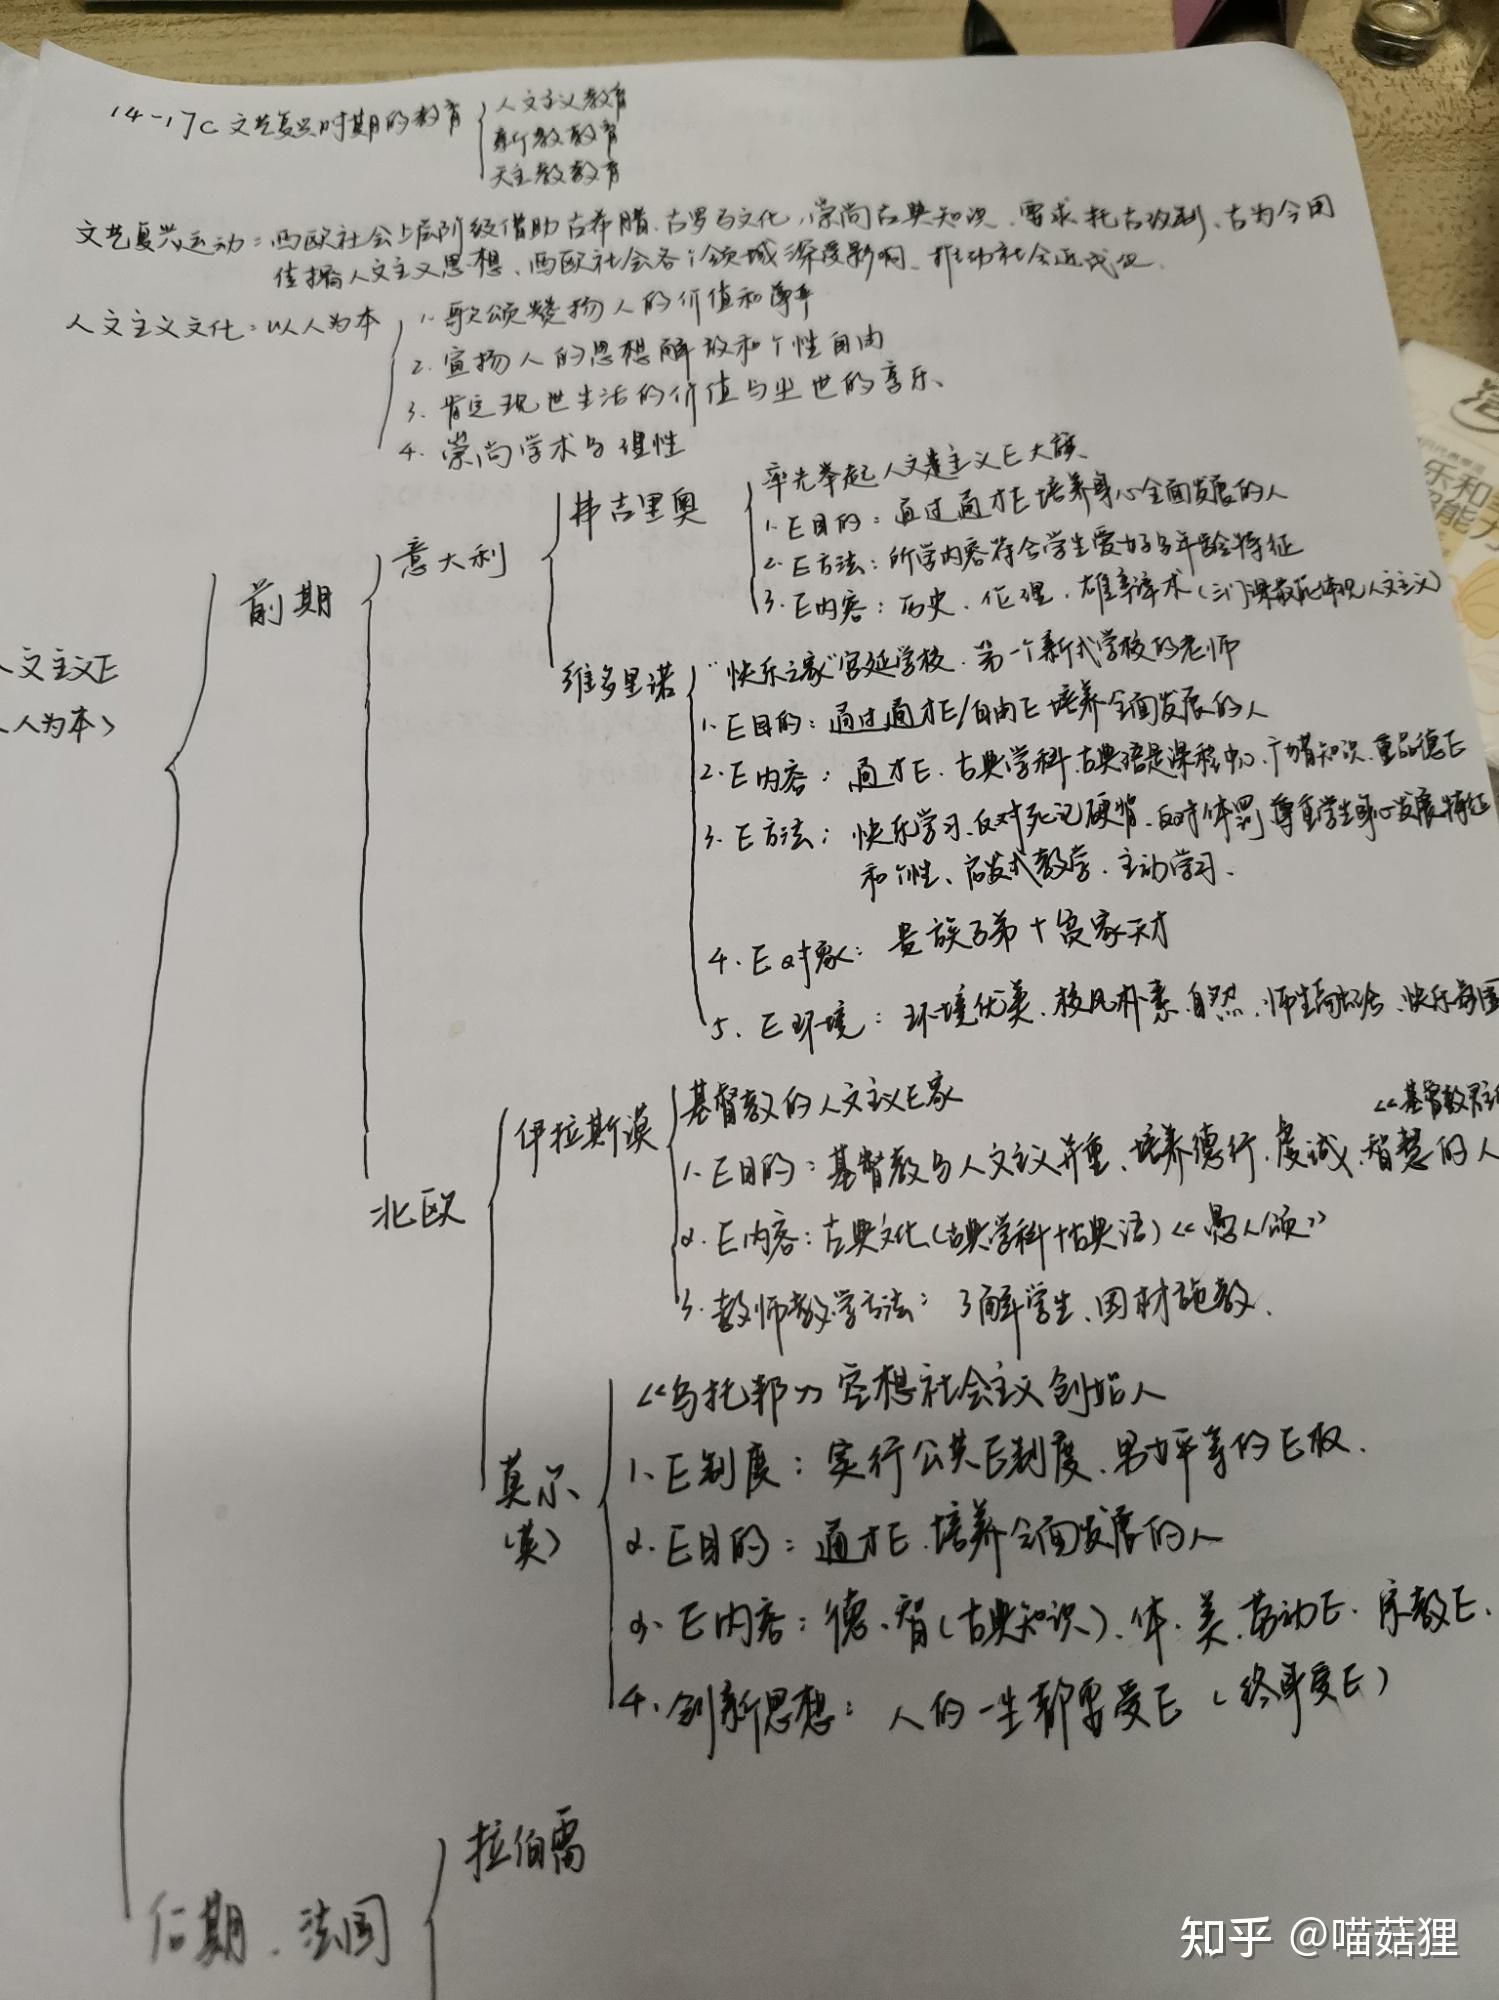 14-17C文艺复兴时期的教育
人文主义教育
新教教育
天主教教育
文艺复兴运动：西欧社会上层阶级借助古希腊、古罗马文化，崇尚古典知识、要求托古改制、古为今用
传播人文主义思想、西欧社会各个领域深受影响、推动社会近代化.
人文主义文化：以人为本
1. 歌颂赞扬人的价值和尊严
2. 宣扬人的思想解放和个性自由
3. 肯定现世生活的价值与尘世的享乐、
4. 崇尚学术与理性
人文主义E
人为本>
前期
意大利
弗吉里奥
率先举起人文主义E大旗
1. E目的：通过通才E培养身心全面发展的人
2. E方法：所学内容符合学生爱好与年龄特征
3. E内容：历史、伦理、雄辩术(三门课最能体现人文主义)
维多里诺
"快乐之家"宫廷学校、第一个新式学校的老师
1. E目的：通过通才E/自由E培养全面发展的人
2. E内容：通才E、古典学科、古典语是课程中心、广博知识、重品德E
3. E方法：快乐学习、反对死记硬背、反对体罚 尊重学生身心发展特征
和个性、启发式教学、主动学习.
4. E对象：贵族子弟+贫家天才
5. E环境：环境优美、校风朴素、自然、师生融合、快乐氛围
北欧
伊拉斯谟
基督教的人文主义E家
《基督教君主的
1. E目的：基督教与人文主义并重、培养德行、虔诚、智慧的人
2. E内容：古典文化(古典学科+古典语)《愚人颂》
3. 教师教学方法：了解学生、因材施教.
莫尔
(英)
《乌托邦》空想社会主义创始人
1. E制度：实行公共E制度、男女平等的E权.
2. E目的：通才E、培养全面发展的人
3. E内容：德、智(古典知识)、体、美、劳动E、宗教E.
4. 创新思想：人的一生都要受E(终身受E)
后期、法国
拉伯雷
知乎 @喵菇狸